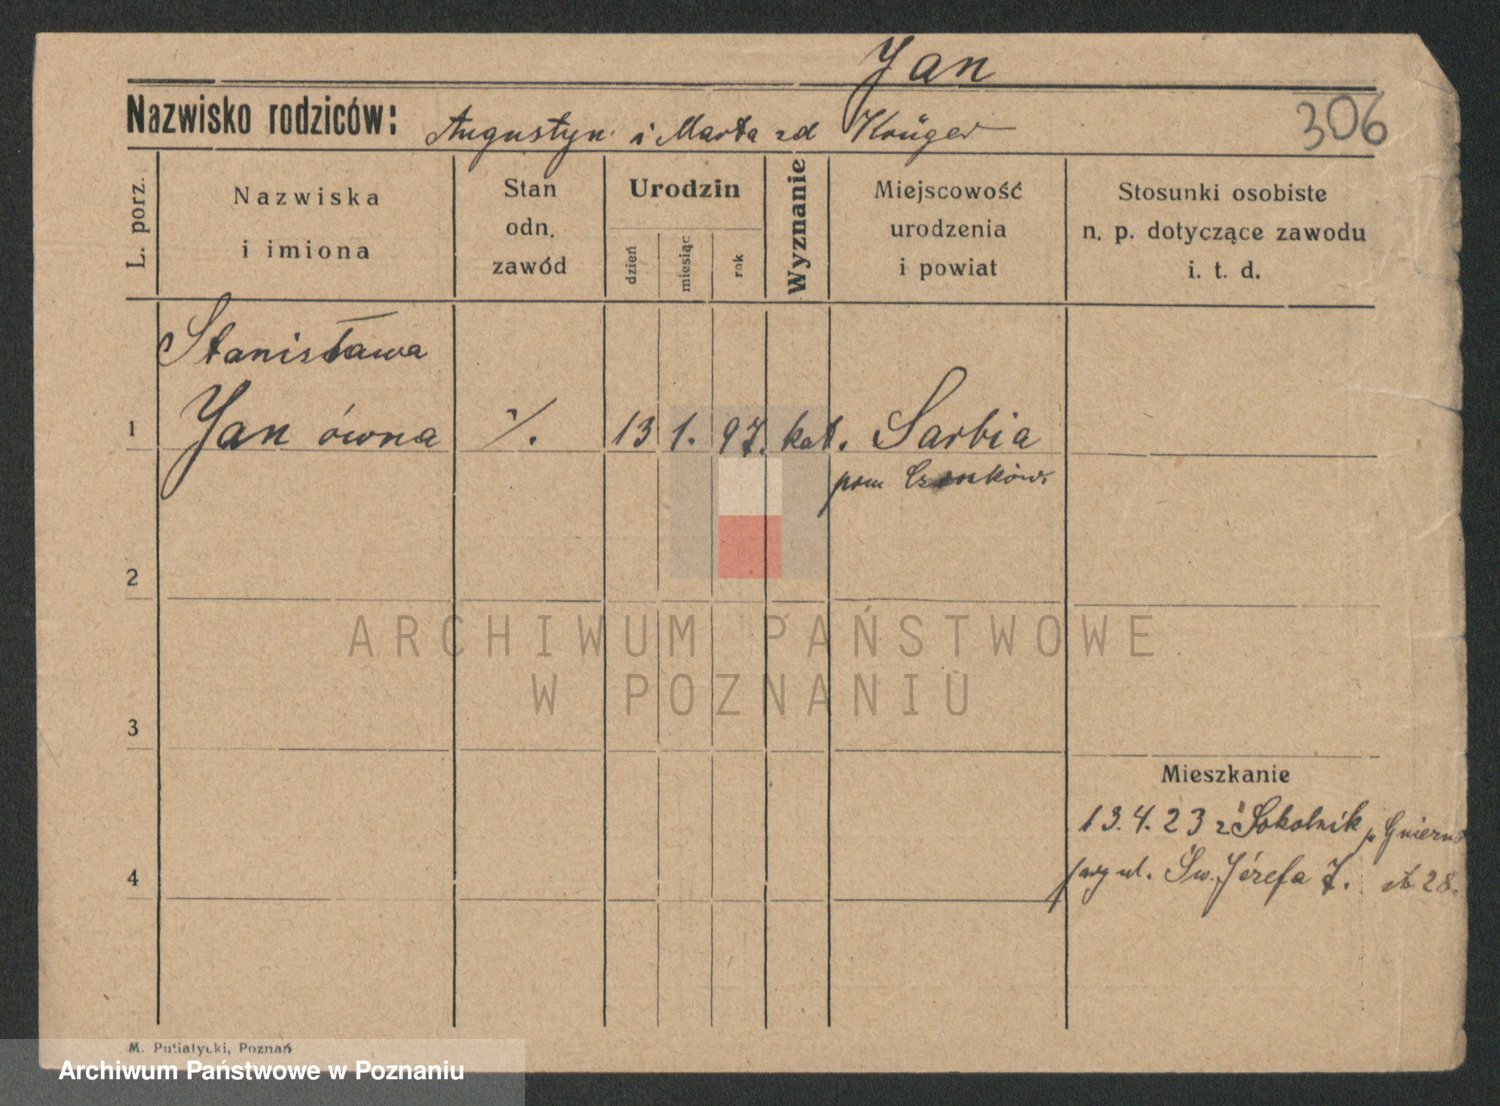 Jan
306
Nazwisko rodziców: Augustyn i Marta zd Krüger
L. porz.
Nazwiska
i imiona
Stan
odn.
zawód
Urodzin
dzień
miesiąc
rok
Wyznanie
Miejscowość
urodzenia
i powiat
Stosunki osobiste
n. p. dotyczące zawodu
i. t. d.
Stanisława
1 Jan ówna /. 13 1. 97. kat. Sarbia
pow Czarnków
2
ARCHIWUM PAŃSTWOWE
W POZNANIU
3
Mieszkanie
13.4.23 z Sokolnik p Gniezno
4
ul. Św. Józefa 7. 28.
M. Putiatycki, Poznań
Archiwum Państwowe w Poznaniu